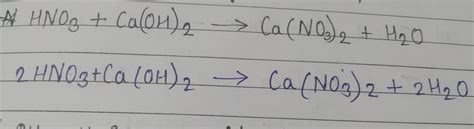 HNO₃ + Ca(OH)₂ → Ca(NO₃)₂ + H₂O
2HNO₃ + Ca(OH)₂ → Ca(NO₃)₂ + 2H₂O